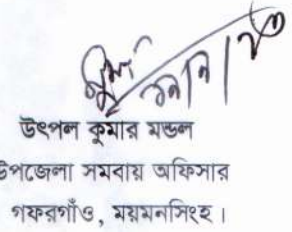 উৎপল কুমার মন্ডল
উপজেলা সমবায় অফিসার
গফরগাঁও, ময়মনসিংহ।